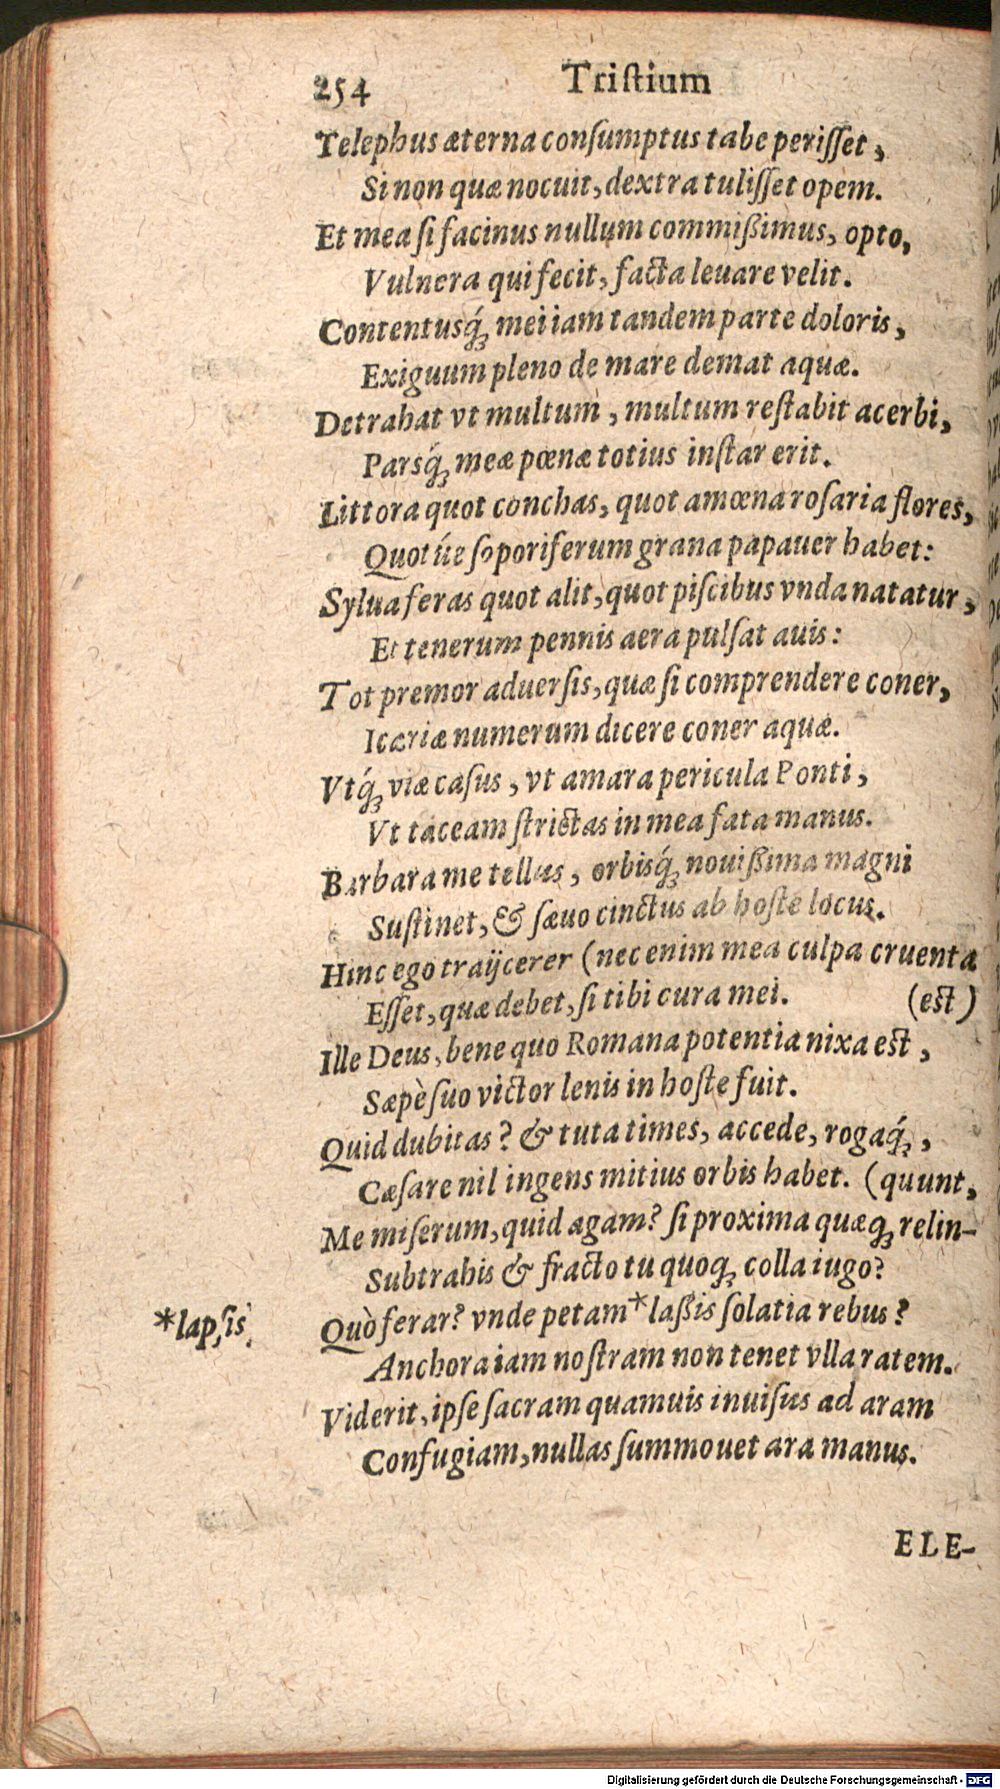 254 Triſtium
Telephus æterna conſumptus tabe periſſet,
Si non quæ nocuit, dextra tuliſſet opem.
Et mea ſi facinus nullum commißimus, opto,
Vulnera qui fecit, facta leuare velit.
Contentusq́; mei iam tandem parte doloris,
Exiguum pleno de mare demat aquæ.
Detrahat vt multum, multum reſtabit acerbi,
Parsq́; meæ pœnæ totius inſtar erit.
Littora quot conchas, quot amœna roſaria flores,
Quotúe ſoporiferum grana papauer habet:
Sylua feras quot alit, quot piſcibus vnda natatur,
Et tenerum pennis aera pulſat auis:
Tot premor aduerſis, quæ ſi comprendere coner,
Icariæ numerum dicere coner aquæ.
Vtq́; viæ caſus, vt amara pericula Ponti,
Vt taceam ſtrictas in mea fata manus.
Barbara me tellus, orbisq́; nouißima magni
Suſtinet, & ſæuo cinctus ab hoſte locus.
Hinc ego traijcerer (nec enim mea culpa cruenta
Eſſet, quæ debet, ſi tibi cura mei. (eſt)
Ille Deus, bene quo Romana potentia nixa eſt,
Sæpè ſuo victor lenis in hoſte fuit.
Quid dubitas? & tuta times, accede, rogaq́;,
Cæſare nil ingens mitius orbis habet. (quunt,
Me miſerum, quid agam? ſi proxima quæq; relin-
Subtrahis & fracto tu quoq; colla iugo?
*lapſis Quò ferar? vnde petam *laßis ſolatia rebus?
Anchora iam noſtram non tenet vlla ratem.
Viderit, ipſe ſacram quamuis inuiſus ad aram
Confugiam, nullas ſummouet ara manus.
ELE-
Digitalisierung gefördert durch die Deutsche Forschungsgemeinschaft - DFG